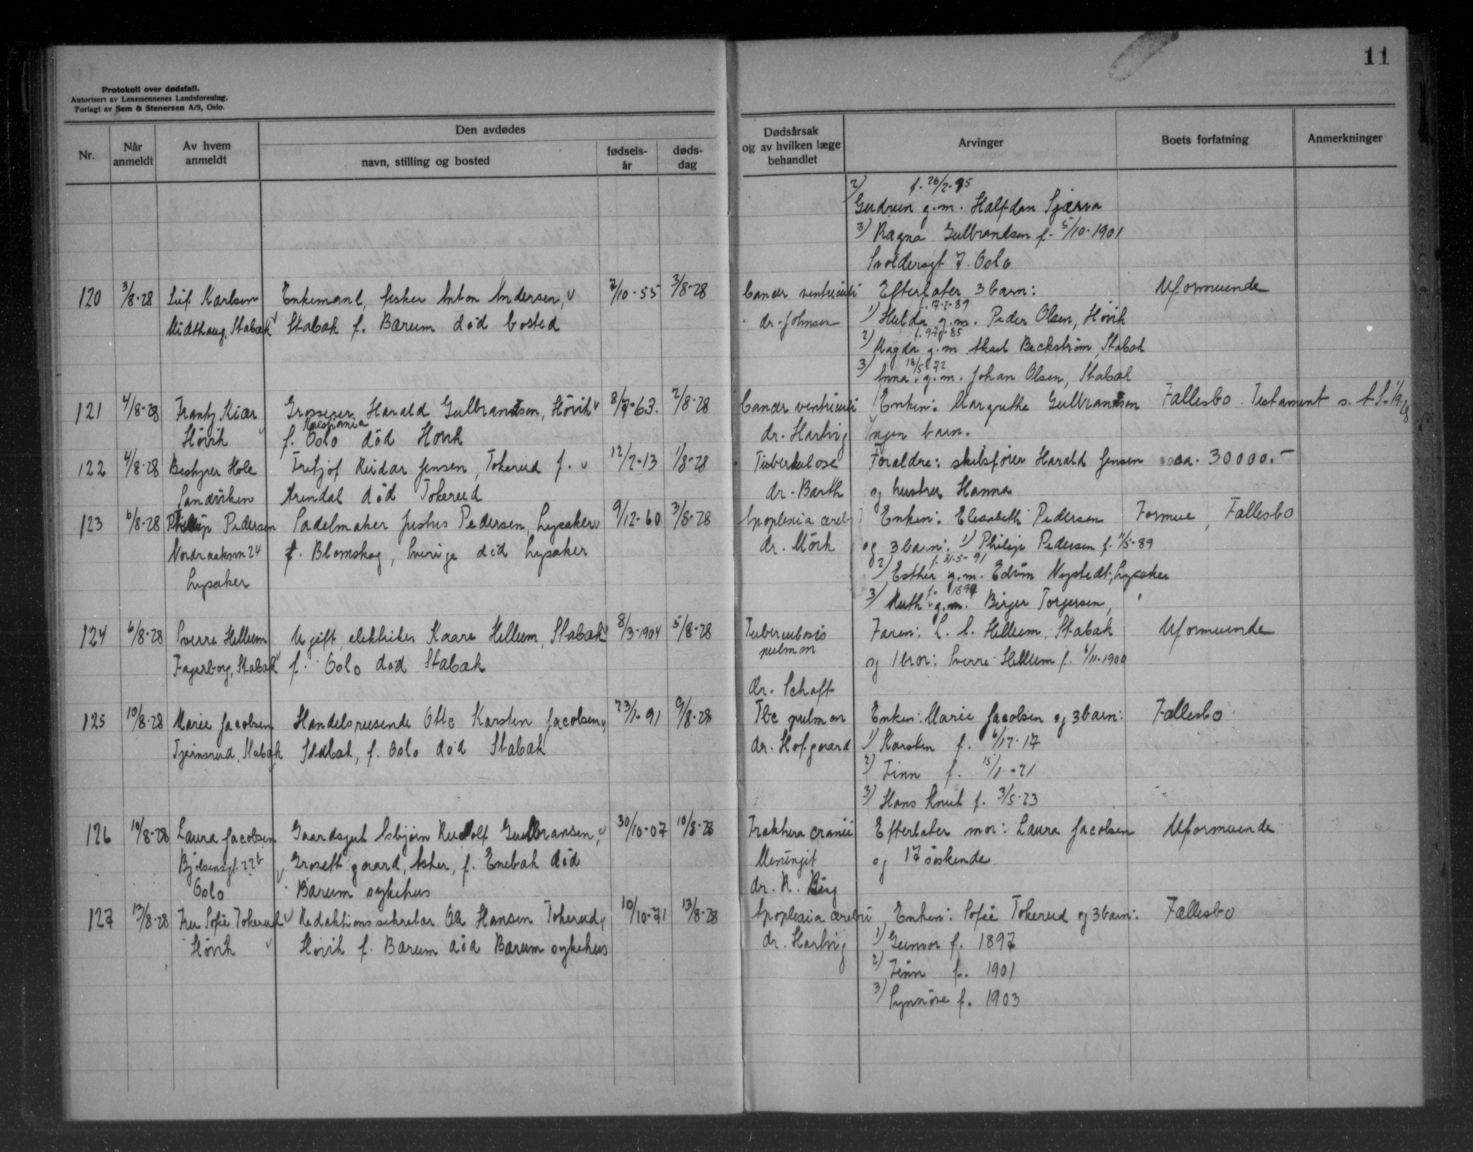 11
Protokoll over dødsfall.
Autorisert av Lensmennenes Landsforening.
Forlagt av Sem & Stenersen A/S, Oslo.
Nr.
Når anmeldt
Av hvem anmeldt
Den avdødes
navn, stilling og bosted
fødsels-år
døds-dag
Dødsårsak og av hvilken læge behandlet
Arvinger
Boets forfatning
Anmerkninger
2) f. 26/2-95
Gudrun g.m. Halfdan
3) Ragna Gulbrandsen f. 5/10-1901
7. Oslo
120 3/8-28 Leif Karlsen Enkemand, fisker Anton Andersen, 2/10-55 3/8-28 Cancer ventriculi Efterlater 3 barn: Uformuende
Midthaug, Stabæk Stabæk f. Bærum død bosted dr. Johnsen 1) Hulda g.m. Peder Olsen, Høvik
f. 17-2-89
2) Magda g.m. Aksel Beckstrøm, Stabæk
3) Anna g.m. Johan Olsen, Stabæk
121 4/8-28 Frantz Kiær Grosserer Harald Gulbrandsen, Høvik 8/7-63. 2/8-28 Cancer ventriculi Enken: Margrethe Gulbrandsen Fællesbo. Testament
Høvik f. Oslo død Høvik dr. Hartvig Ingen barn.
122 4/8-28 Bestyrer Hole Fritjof Reidar Jensen, Tokerud f. 12/2-13 1/8-28 Tuberkulose Foraldre: skibsfører Harald Jensen ca. 30000.-
Sandviken Arendal død Tokerud dr. Barth og hustru Hanna
123 6/8-28 Philip Pedersen Sadelmaker Justus Pedersen, Lysaker 9/12-60 3/8-28 Apoplexia cerebri Enken: Elisabeth Pedersen Formue, Fællesbo
Nordraaksvn 24 f. Blomskog, Sverige død Lysaker dr. Mørk og 3 barn: 1) Philip Pedersen f. 2/5-89
Lysaker 2) Esther g.m. Edvin Nystedt, Lysaker
f. 21-5-91
3) Ruth g.m. Birger Torgersen,
124 6/8-28 Sverre Hellum Ugift, elektriker Kaare Hellum, Stabæk 8/3-1904 5/8-28 Tuberculosis Faren: L. A. Hellum, Stabæk Uformuende
Fagerborg, Stabæk f. Oslo død Stabæk pulmon og 1 bror: Sverre Hellum f. 6/11-1900
dr. Schaft
125 10/8-28 Marie Jacobsen Handelsreisende Otto Karsten Jacobsen, 23/1-91 9/8-28 Tbc pulmon Enken: Marie Jacobsen og 3 barn: Fællesbo
Tjernsrud, Stabæk Stabæk, f. Oslo død Stabæk dr. Hofgaard 1) Karsten f. 6/12-17
2) Finn f. 15/1-21
3) Hans Knut f. 3/5-23
126 10/8-28 Laura Jacobsen Gaardsgut Asbjørn Rudolf Gulbransen, 30/10-07 10/8-28 Fraktura cranii Efterlater mor: Laura Jacobsen Uformuende
Bjølsengt 22b Grosett gaard, Asker, f. Enebak død Meningit og 17 søskende
Oslo Bærum sykehus dr. R.
127 13/8-28 Fru Sofie Tokerud Redaktionssekretær Ole Hansen Tokerud, 10/10-71 13/8-28 Apoplexia cerebri Enken: Sofie Tokerud og 3 barn: Fællesbo
Høvik Høvik f. Bærum død Bærum sykehus dr. Hartvig 1) Gunvor f. 1897
2) Finn f. 1901
3) Synnøve f. 1903